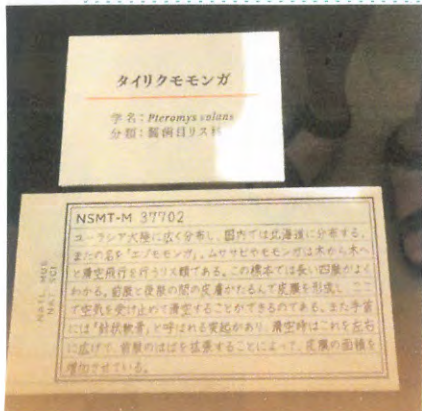 タイリクモモンガ
学名：Pteromys volans
分類：齧歯目リス科
NSMT-M 37702
ユーラシア大陸に広く分布し、国内では北海道に分布する。
またの名を「エゾモモンガ」。ムササビやモモンガは木から木へ
と滑空飛行を行うリス類である。この標本では長い四肢がよく
わかる。前肢と後肢の間の皮膚がたるんで皮膜を形成し、ここ
で空気を受け止めて滑空することができるのである。また手首
には「針状軟骨」と呼ばれる突起があり、滑空時はこれを左右
に広げて、前肢のはばを拡張することによって、皮膜の面積を
増加させている。
NATL MUS
NAT SCI